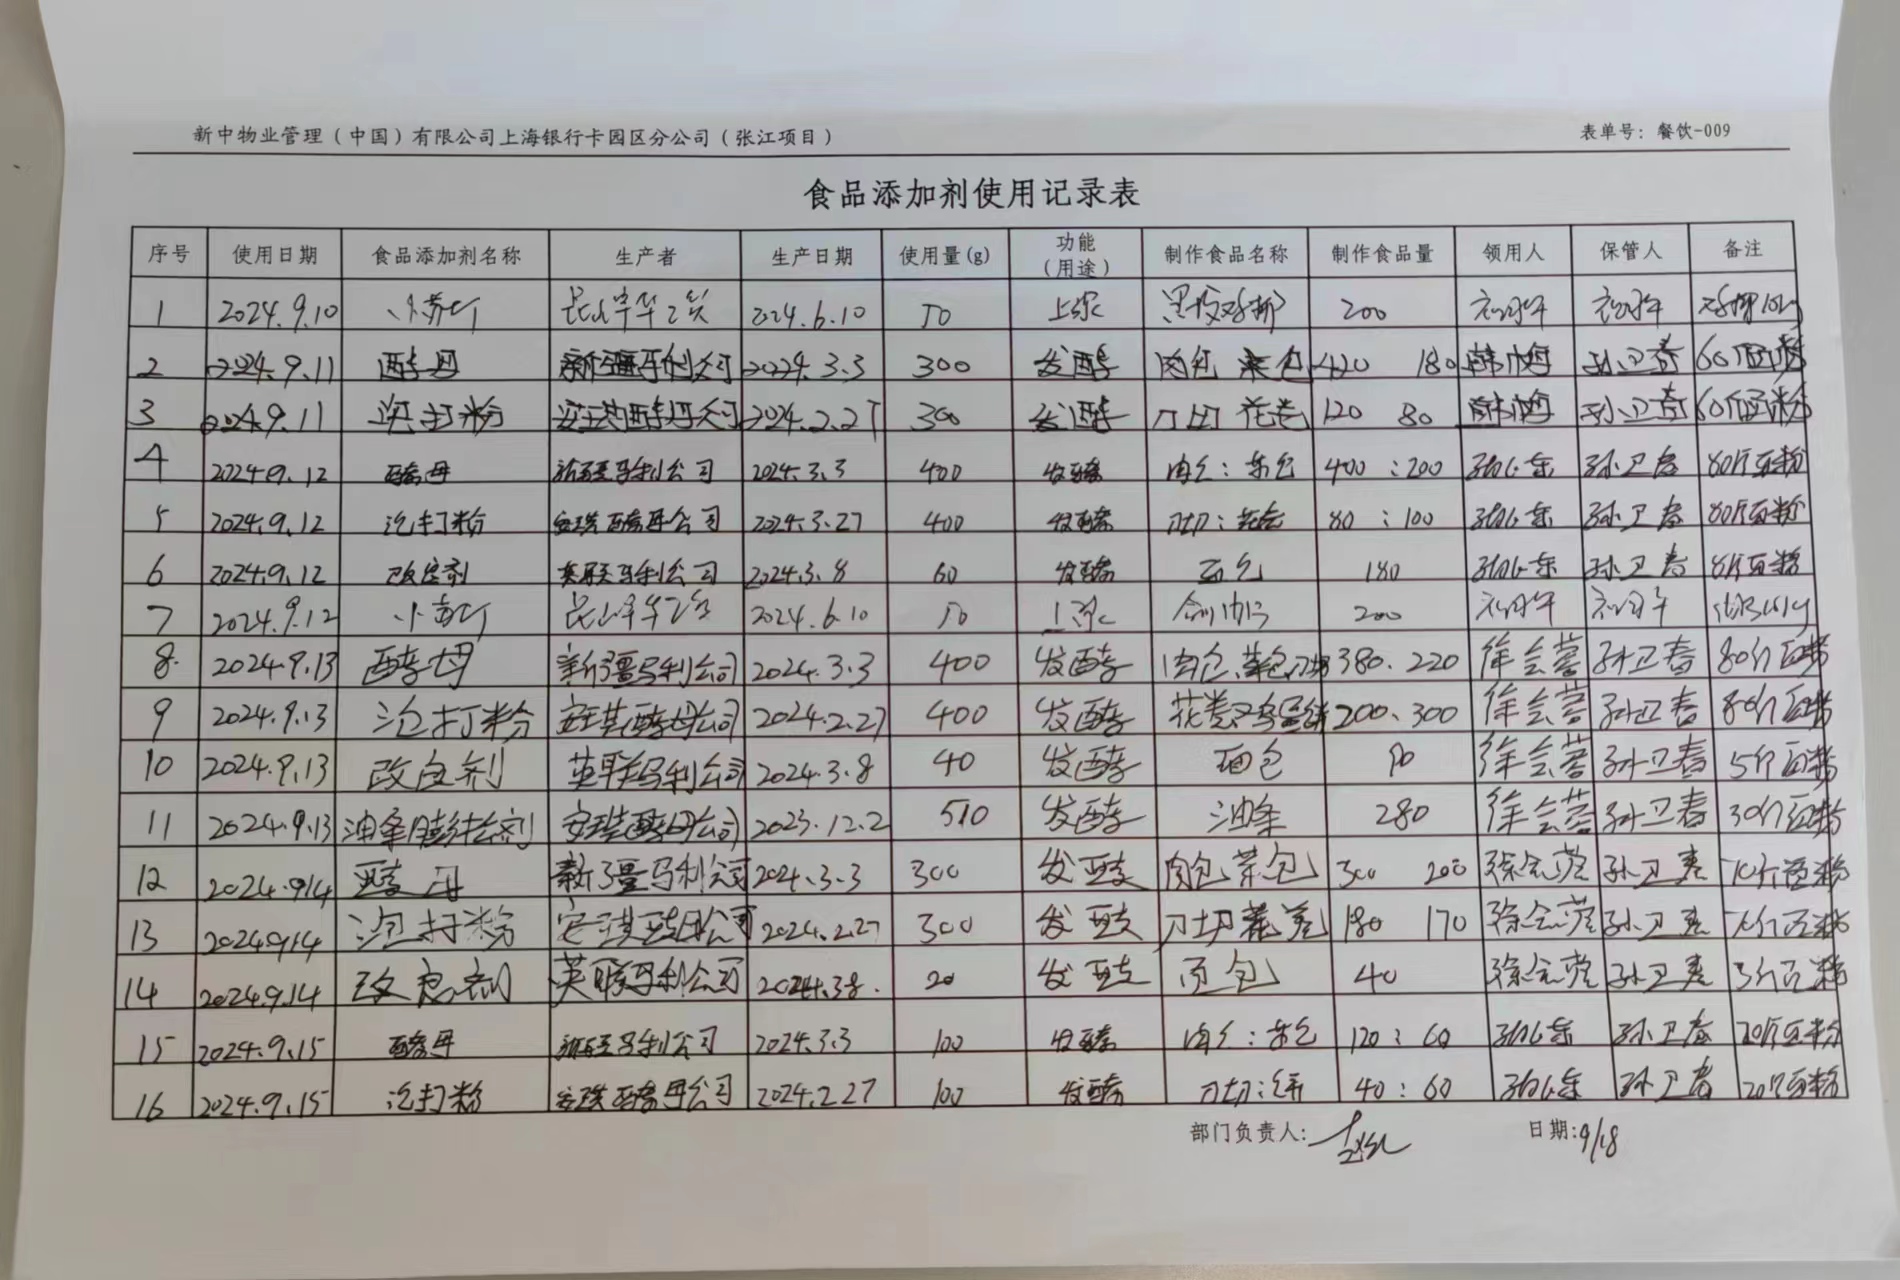 新中物业管理（中国）有限公司上海银行卡园区分公司（张江项目） 表单号：餐饮-009
食品添加剂使用记录表
序号 使用日期 食品添加剂名称 生产者 生产日期 使用量(g) 功能（用途） 制作食品名称 制作食品量 领用人 保管人 备注
1 2024.9.10 小苏打 2024.6.10 50 上浆 黑椒鸡柳 200
2 2024.9.11 酵母 新疆马利公司 2024.3.3 300 发酵 肉包 菜包 420 180 孙卫春 60斤面粉
3 2024.9.11 泡打粉 安琪酵母公司 2024.2.27 300 发酵 刀切 花卷 120 80 孙卫春 60斤面粉
4 2024.9.12 酵母 新疆马利公司 2024.3.3 400 发酵 肉包：菜包 400：200 孙卫春 80斤面粉
5 2024.9.12 泡打粉 安琪酵母公司 2024.3.27 400 发酵 刀切：花卷 80：100 孙卫春 80斤面粉
6 2024.9.12 改良剂 英联马利公司 2024.3.8 60 发酵 面包 180 孙卫春 8斤面粉
7 2024.9.12 小苏打 2024.6.10 50 上浆 200
8. 2024.9.13 酵母 新疆马利公司 2024.3.3 400 发酵 肉包.菜包. 380.220 徐会营 孙卫春 80斤面粉
9 2024.9.13 泡打粉 安琪酵母公司 2024.2.27 400 发酵 花卷 200.300 徐会营 孙卫春 80斤面粉
10 2024.9.13 改良剂 英联马利公司 2024.3.8 40 发酵 面包 徐会营 孙卫春 5斤面粉
11 2024.9.13 油条膨松剂 安琪酵母公司 2023.12.2 510 发酵 油条 280 徐会营 孙卫春 30斤面粉
12 2024.9.14 酵母 新疆马利公司 2024.3.3 300 发酵 肉包 菜包 300 200 徐会营 孙卫春 70斤面粉
13 2024.9.14 泡打粉 安琪酵母公司 2024.2.27 300 发酵 刀切 花卷 180 170 徐会营 孙卫春 70斤面粉
14 2024.9.14 改良剂 英联马利公司 2024.3.8. 20 发酵 面包 40 徐会营 孙卫春 3斤面粉
15 2024.9.15 酵母 新疆马利公司 2024.3.3 100 发酵 肉包：菜包 120：60 孙卫春 20斤面粉
16 2024.9.15 泡打粉 安琪酵母公司 2024.2.27 100 发酵 刀切：饼 40：60 孙卫春 20斤面粉
部门负责人： 日期：9/18